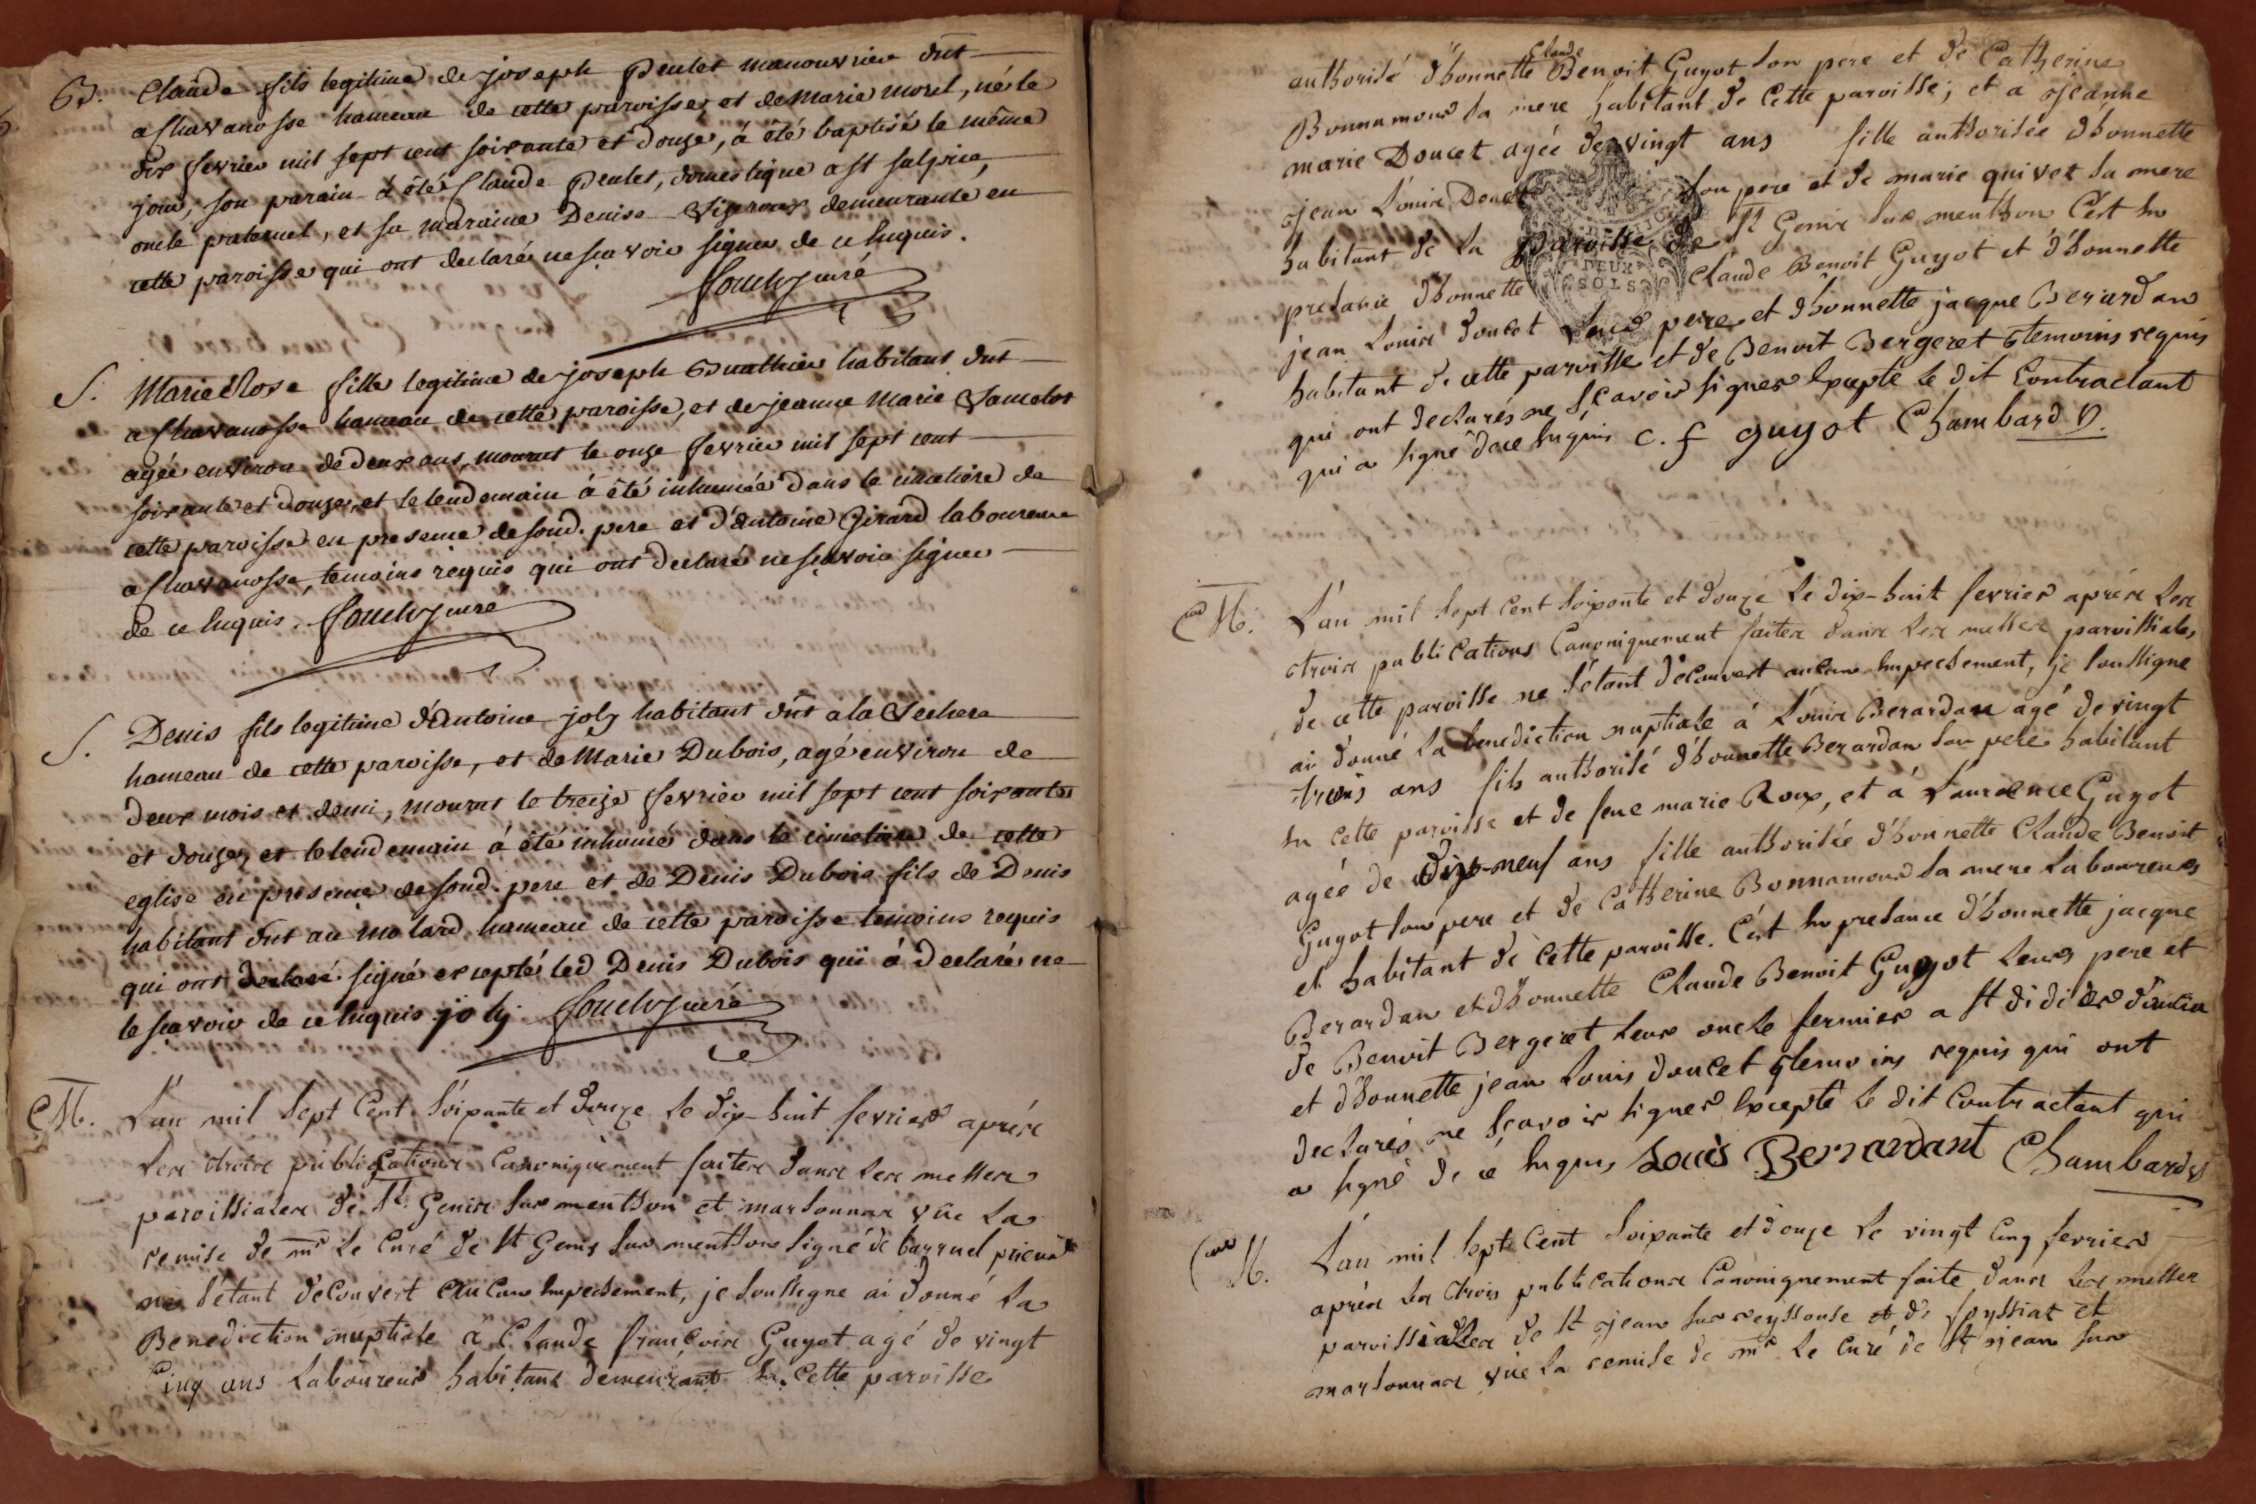 B. Claude fils legitime de joseph Peulet manouvrier dnt
a Chavanosse hameau de cette paroisse, et de Marie morel, né le
dix fevrier mil sept cent soixante et douze, à été baptisé le même
jour, son parain à été Claude Peulet, domestique a St sulpice,
oncle paternel, et sa maraine Denise demeurante en
cette paroisse qui ont declaré ne sçavoir signer de ce enquis.
curé
S. Marie Rose fille legitime de joseph Buathier habitant dnt
a Chavanosse hameau de cette paroisse, et de jeanne Marie
agée environ de deux ans, mourut le onze fevrier mil sept cent
soixante et douze, et le lendemain à été inhumée dans le cimetiere de
cette paroisse en presence de soud. pere et d'antoine Girard laboureur
a Chavanosse, temoins requis qui ont declaré ne sçavoir signer
de ce enquis. curé
S. Denis fils legitime d'Antoine joly habitant dnt a la
hameau de cette paroisse, et de Marie Dubois, agé environ de
deux mois et demi, mourut le treize fevrier mil sept cent soixante
et douze, et le lendemain à été inhumé dans le cimetiere de cette
eglise en presence de soud. pere et de Denis Dubois fils de Denis
habitant dnt au molard hameau de cette paroisse temoins requis
qui ont signé excepté led Denis Dubois qui à declaré ne
le sçavoir de ce enquis. joly curé
M. L'an mil sept Cent soixante et douze le dix-huit fevrier aprés
les trois publications canoniquement faites dans les messes
paroissiales de St. Genis sur menthon et marsonnas vûe la
remise de mr le Curé de St Genis sur menthon signé de barruel prieur
ne s'étant découvert aucun empechement, je soussigne ai donné la
Benediction nuptiale à Claude françois Guyot agé de vingt
Cinq ans Laboureur habitant demeurant en cette paroisse
authorisé d'honnette Claude Benoit Guyot son pere et de Catherine
Bonnamour sa mere habitant de Cette paroisse; et a jeanne
marie Doucet agée de vingt ans fille authorisée d'honnette
jean Louis Doucet son pere et de marie quivet sa mere
habitant de la paroisse de St Genis sur menthon C'est en
presance d'honnette Claude Benoit Guyot et d'honnette
jean Louis doucet leurs peres et d'honnette jacque Berardan
habitant de cette paroisse et de Benoit Bergeret temoins requis
qui ont declarés ne sçavoir signer excepté le dit Contractant
qui a signé de ce enquis C. f guyot Chambard V.
DEUX
SOLS
M. L'an mil sept Cent soixante et douze le dix-huit fevrier aprés les
trois publications Canoniquement faites dans les messes paroissiales
de cette paroisse ne s'étant découvert aucun empechement, je soussigne
ai donné la benediction nuptiale à Louis Berardan agé de vingt
trois ans fils authorisé d'honnette Berardan son pere habitant
en cette paroisse et de feue marie Roux, et à Laurence Guyot
agée de dix-neuf ans fille authorisée d'honnette Claude Benoit
Guyot son pere et de Catherine Bonnamour sa mere Laboureurs
et habitant de cette paroisse. C'est en presance d'honnette jacque
Berardan et d'honnette Claude Benoit Guyot leurs pere et
de Benoit Bergeret leur oncle fermier a St didier
et d'honnette jean Louis doucet temoins requis qui ont
declarés ne sçavoir signer excepté le dit Contractant qui
a signé de ce enquis Louis Berrardant Chambard V
M. L'an mil sept Cent soixante et douze le vingt Cinq fevrier
aprés les trois publications Canoniquement faite dans les messes
paroissiales de St jean sur reyssouse et de foyssiat et
marsonnas vûe la remise de mr le Curé de St jean sur